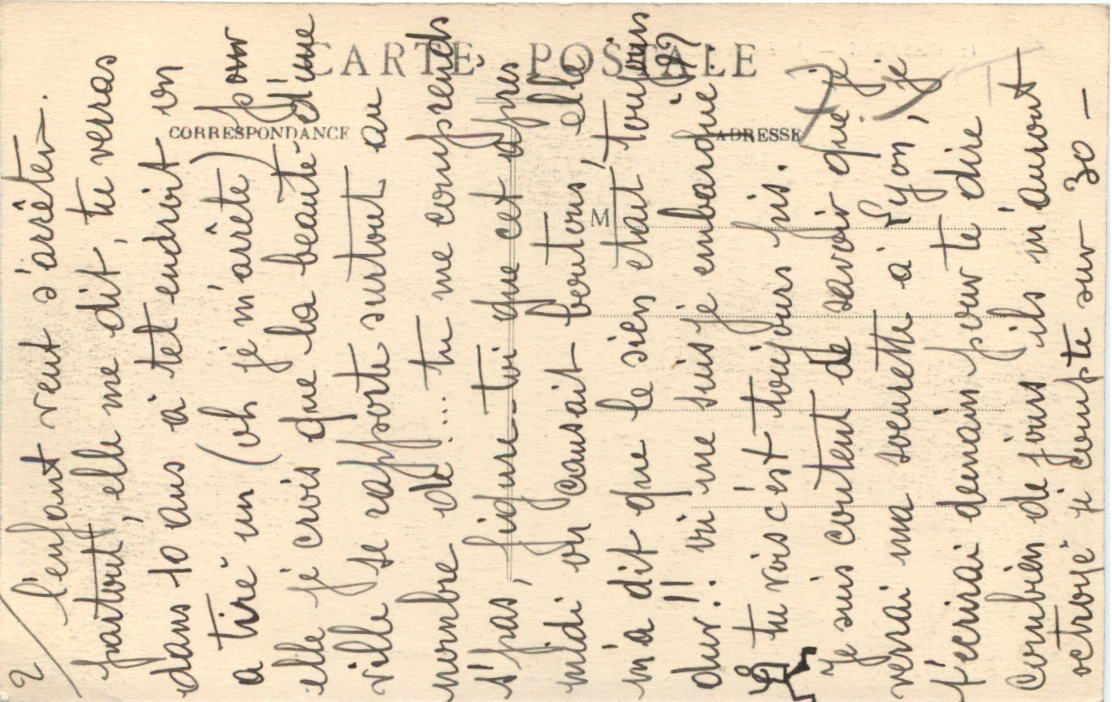 CARTE POSTALE
CORRESPONDANCE
ADRESSE
M
2
l'enfant veut s'arrêter
partout, elle me dit, tu verras
dans 10 ans à tel endroit on
a tiré un (oh je m'arrête) pour
elle je crois que la beauté d'une
ville se rapporte surtout au
nombre de.... tu me comprends
s'pas, figure-toi que cet après
midi on causait boutons, elle
m'a dit que le sien était toujours
dur!! vii me suis je embarqué (??)
Et tu vois c'est toujours pis.
Je suis content de savoir que je
verrai ma soeurette à Lyon, je
t'écrirai demain pour te dire
combien de jours ils m'auront
octroyé je compte sur 30 -